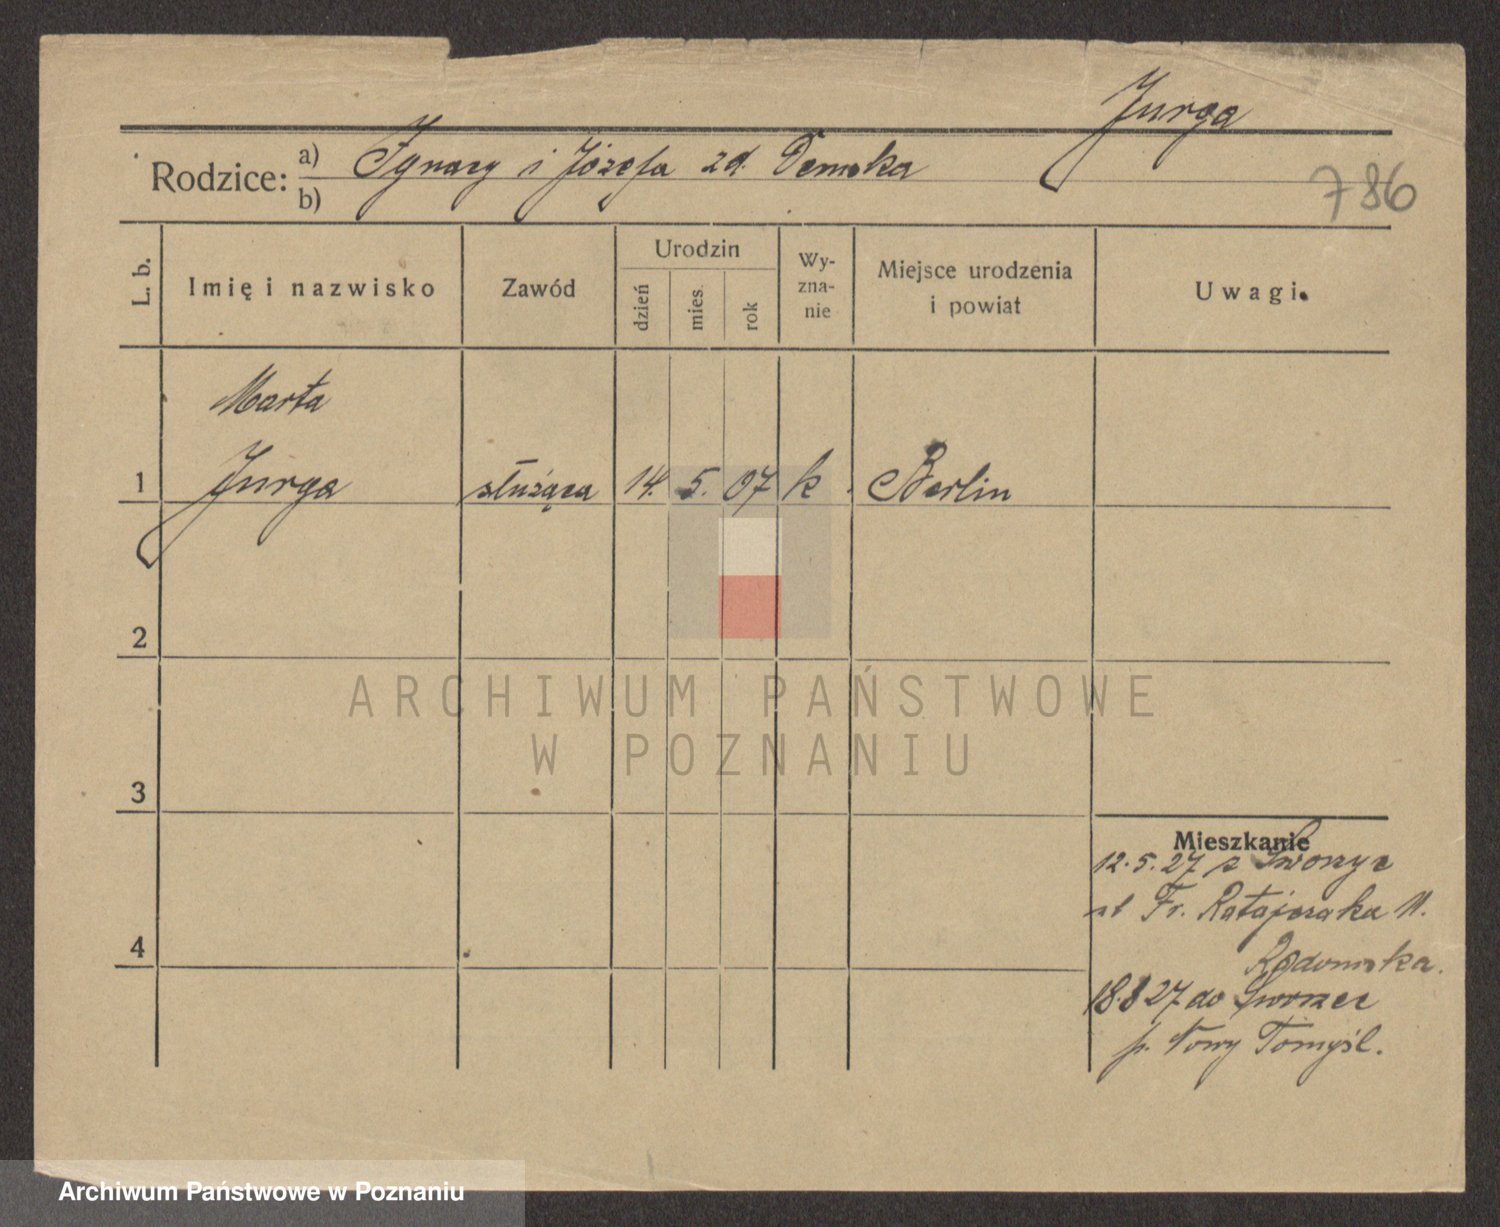 Jurga
Rodzice: a) Ignacy i Józefa zd. Demska
b)
786
L. b.
Imię i nazwisko
Zawód
Urodzin
dzień
mies.
rok
Wy-
zna-
nie
Miejsce urodzenia
i powiat
Uwagi.
Marta
1 Jurga służąca 14. 5. 07 k. Berlin
2
ARCHIWUM PAŃSTWOWE
W POZNANIU
3
Mieszkanie
12.5.27 z
ul Fr. Ratajczaka 11.
4
Radomska.
18.8 27 do
p. Nowy Tomyśl.
Archiwum Państwowe w Poznaniu